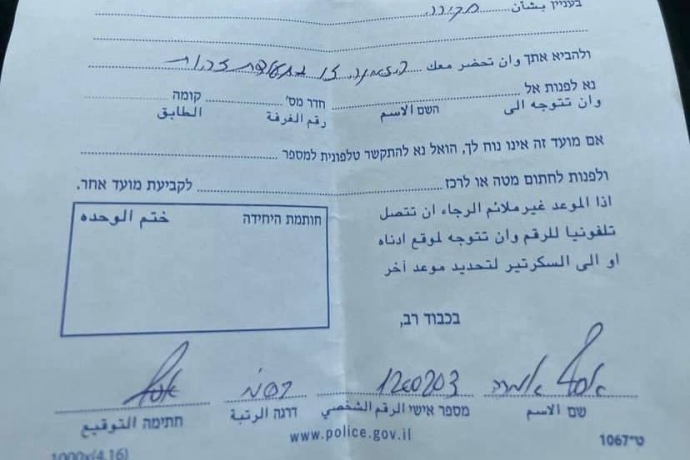 בעניין בשאן חקירה
ולהביא אתך وان تحضر معك הזמנה זו ותעודת זהות
נא לפנות אל חדר מס' קומה
وان تتوجه الى השם الاسم رقم الغرفة الطابق
אם מועד זה אינו נוח לך, הואל נא להתקשר טלפונית למספר
ולפנות לחתום מטה או לרכז לקביעת מועד אחר.
اذا الموعد غير ملائم الرجاء ان تتصل
تلفونيا للرقم وان تتوجه لموقع ادناه
او الى السكرتير لتحديد موعد آخر
חותמת היחידה ختم الوحده
בכבוד רב,
אסף 1200203
שם الاسم מספר אישי الرقم الشخصي דרגה الرتبة חתימה التوقيع
www.police.gov.il
ט"1067
1000x(4.16)